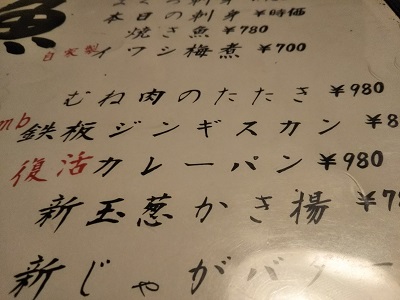 魚
本日の刺身 ¥時価
焼き魚 ¥780
自家製 イワシ梅煮 ¥700
むね肉のたたき ¥980
mb 鉄板ジンギスカン ¥8
復活 カレーパン ¥980
新玉葱かき揚 ¥78
新じゃがバター